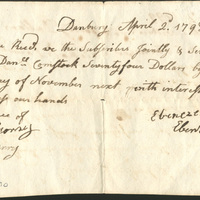 Danbury April 2d. 179
Recd. we the Subscribers Jointly &
Danl. Comstock Seventyfour Dollars
of November next with interest
our hands
of
Ebenez
Eben